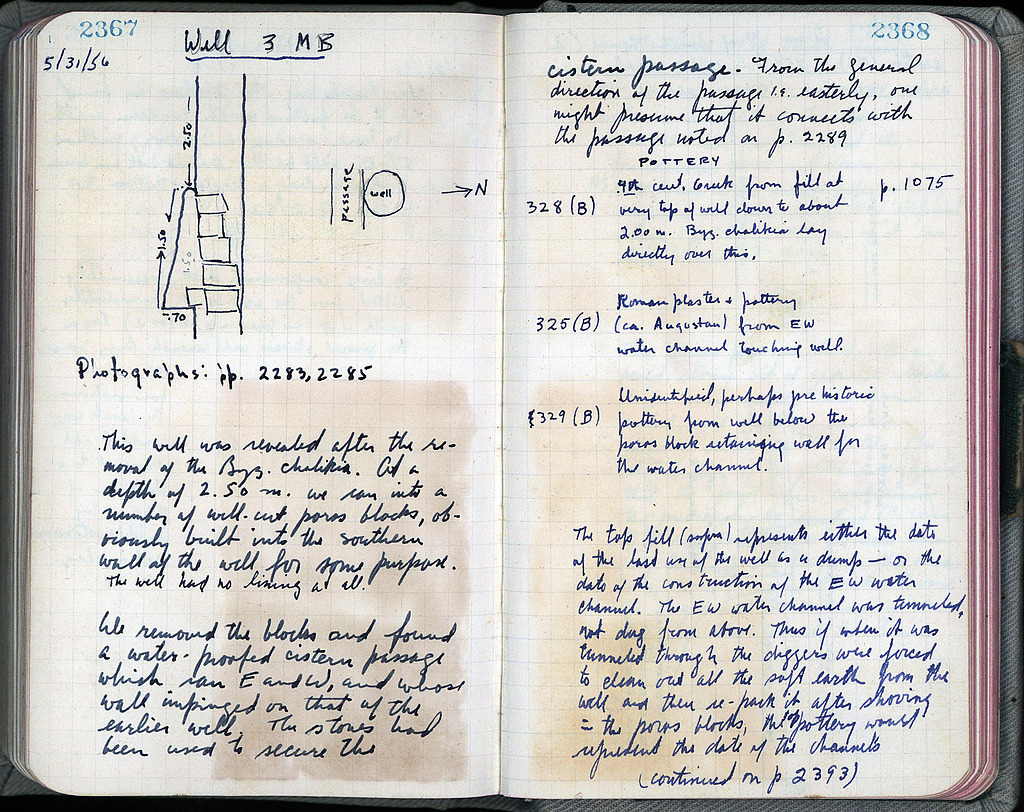 2367
Well 3 MB
5/31/56
2.50
1.50
1.50
.70
passage
well
N
Photographs: pp. 2283, 2285
This well was revealed after the re-
moval of the Byz. chalikia. At a
depth of 2.50 m. we ran into a
number of well-cut poros blocks, ob-
viously built into the southern
wall of the well for some purpose.
The well had no lining at all.
We removed the blocks and found
a water-proofed cistern passage
which ran E and W, and whose
wall impinged on that of the
earlier well. The stones had
been used to secure the
2368
cistern passage. From the general
direction of the passage i.e. easterly, one
might presume that it connects with
the passage noted on p. 2289
POTTERY
328 (B)
4th cent. Greek from fill at
very top of well down to about
2.00 m. Byz. chalikia lay
directly over this.
p. 1075
325 (B)
Roman plaster + pottery
(ca. Augustan) from EW
water channel touching well.
329 (B)
Unidentified, perhaps pre historic
pottery from well below the
poros block retaining wall for
the water channel.
The top fill (supra) represents either the date
of the last use of the well as a dump — or the
date of the construction of the EW water
channel. The EW water channel was tunneled,
not dug from above. Thus if when it was
tunneled through the diggers were forced
to clean out all the soft earth from the
well and then re-pack it after shoving
in the poros blocks, the pottery would
represent the date of the channels
(continued on p 2393)